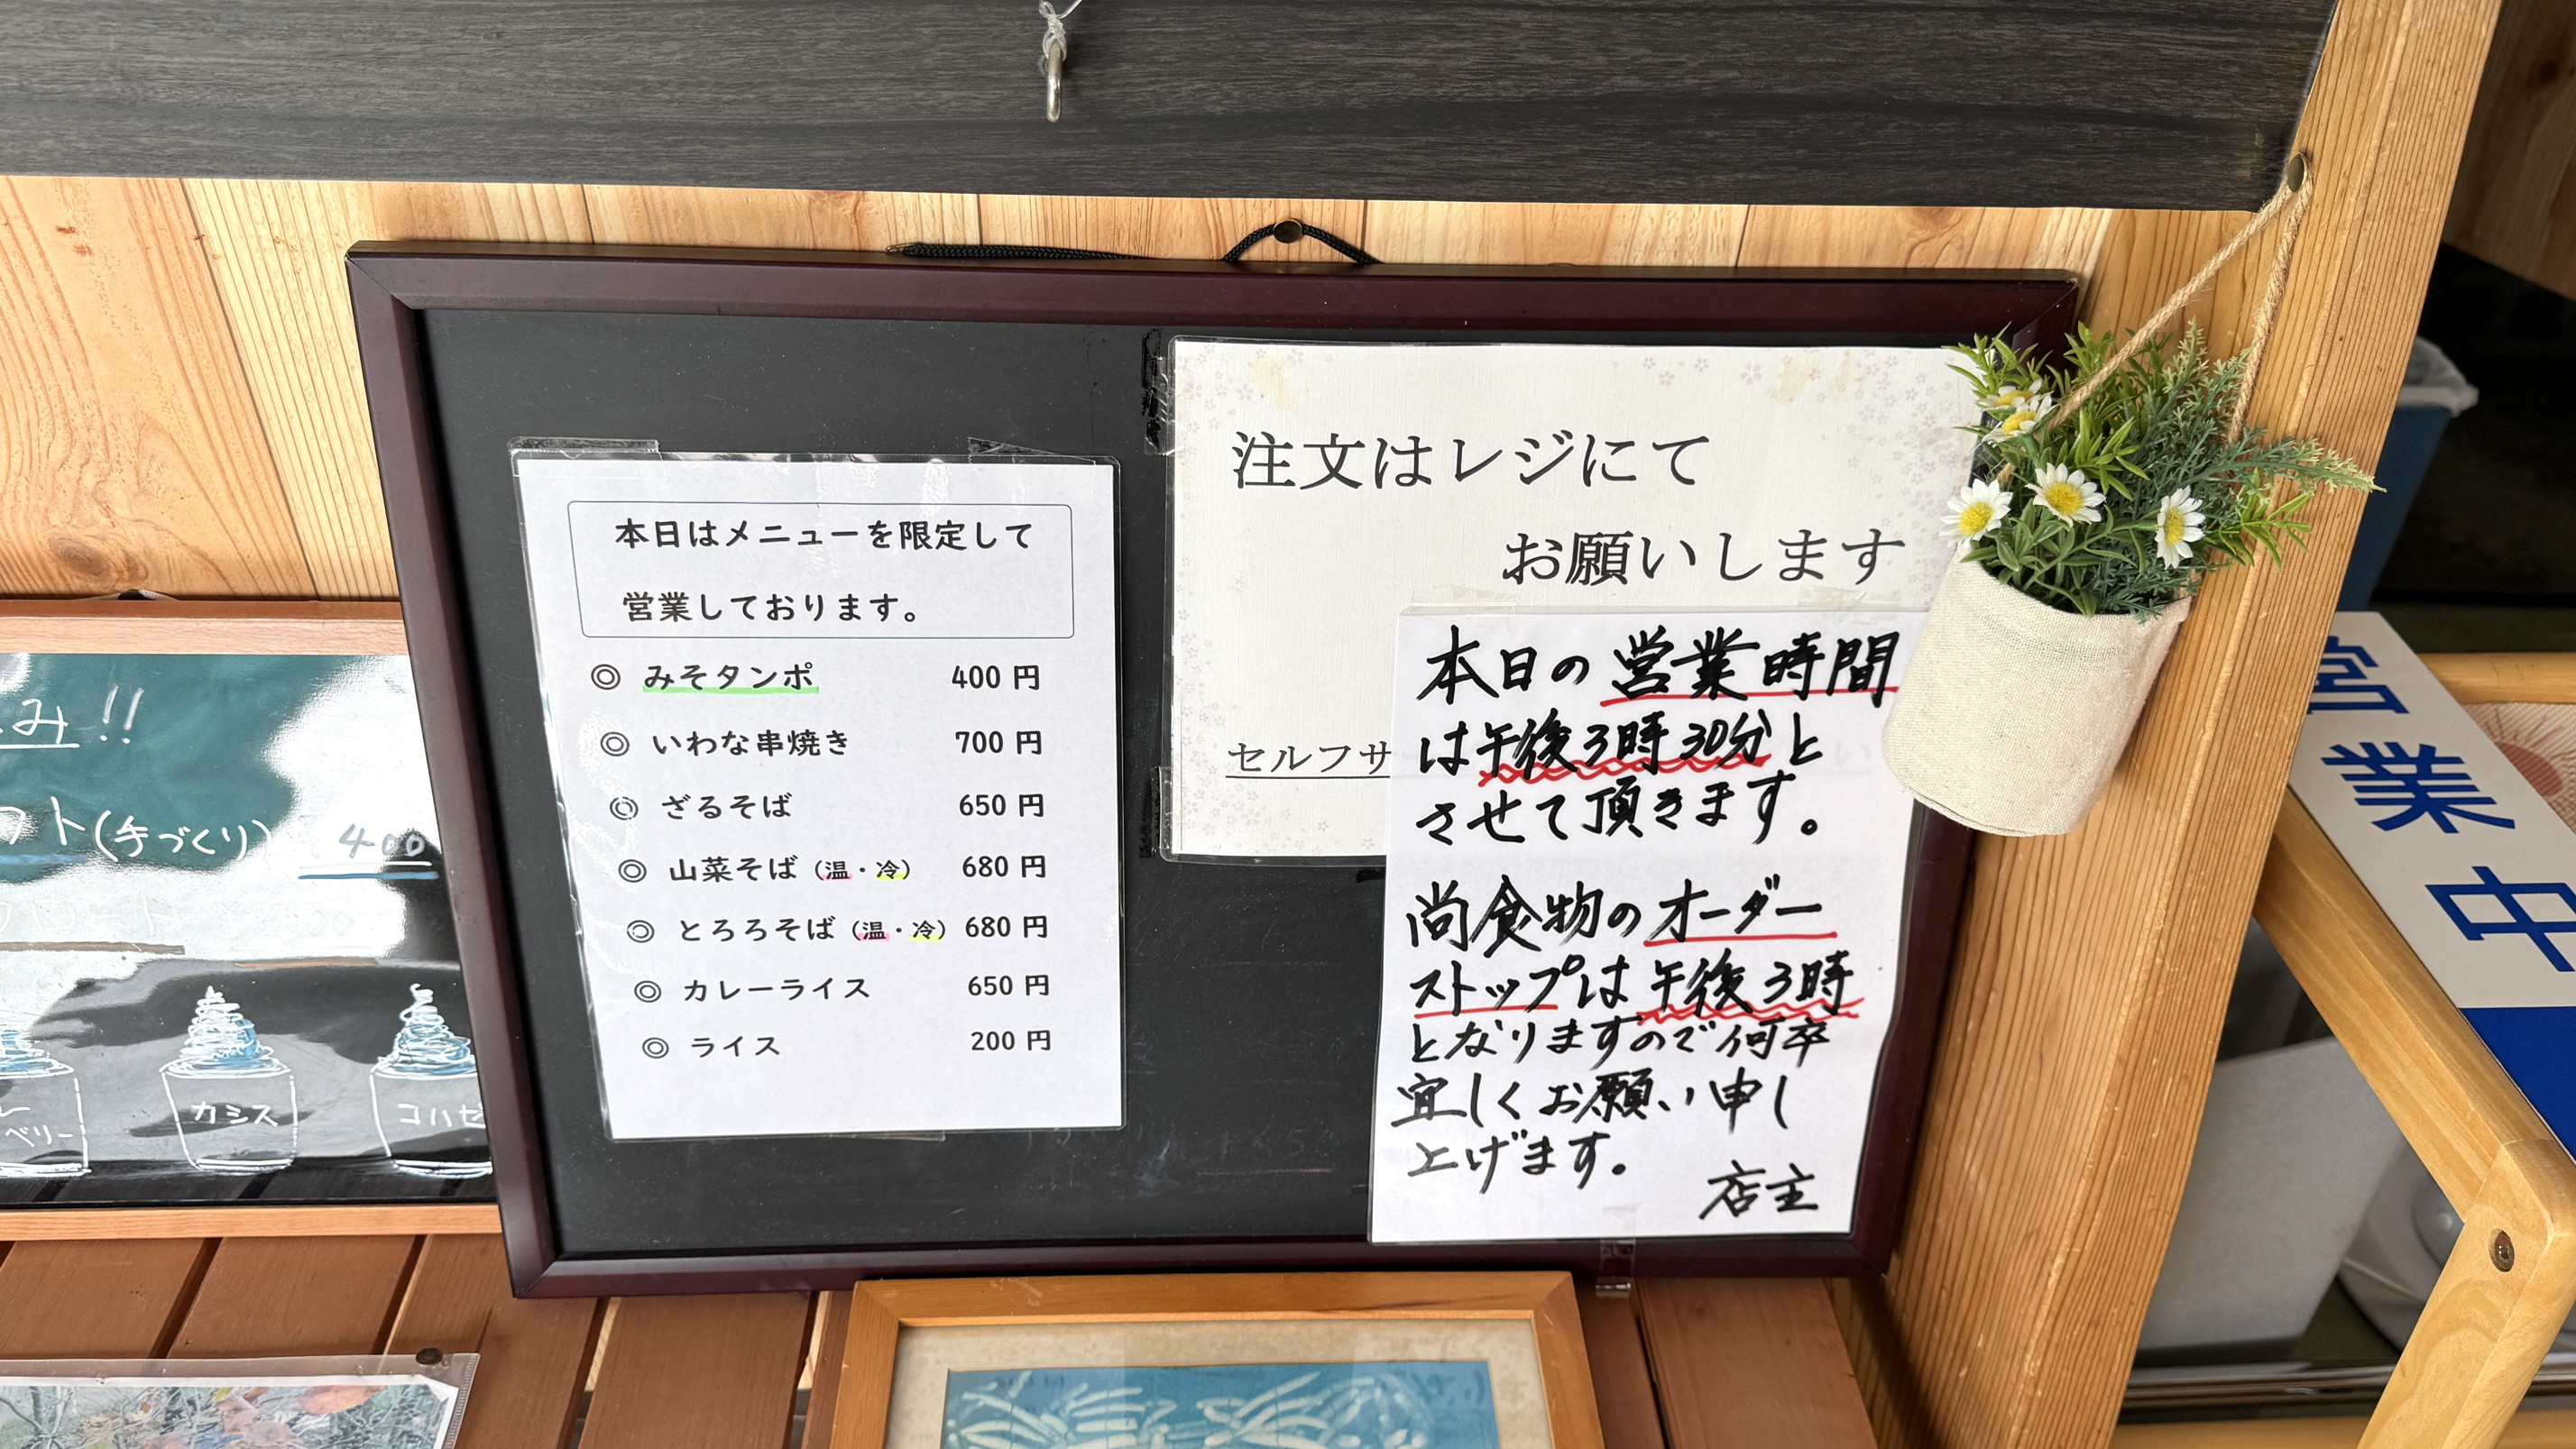 本日はメニューを限定して
営業しております。
◎ みそタンポ 400 円
◎ いわな串焼き 700 円
◎ ざるそば 650 円
◎ 山菜そば（温・冷） 680 円
◎ とろろそば（温・冷） 680 円
◎ カレーライス 650 円
◎ ライス 200 円
注文はレジにて
お願いします
セルフサ
本日の営業時間
は午後3時30分と
させて頂きます。
尚食物のオーダー
ストップは午後3時
となりますので何卒
宜しくお願い申し
上げます。
店主
営業中
み!!
フト(手づくり) 400
ベリー
カシス
コハゼ